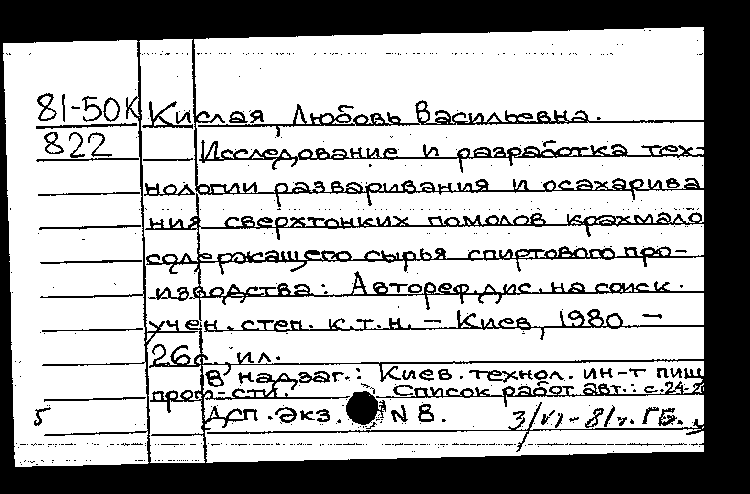 81-50К Кислая, Любовь Васильевна.
822 Исследование и разработка тех-
нологии разваривания и осахарива
ния сверхтонких помолов крахмало
содержащего сырья спиртового про-
изводства: Автореф. дис. на соиск.
учен. степ. к.т.н. – Киев, 1980 –
26с., ил.
В надзаг.: Киев. технол. ин-т пищ
пром-сти. Список работ авт.: с.24-26
5 ДСП. Экз. N 8. 3/VI-81г. ГБ.